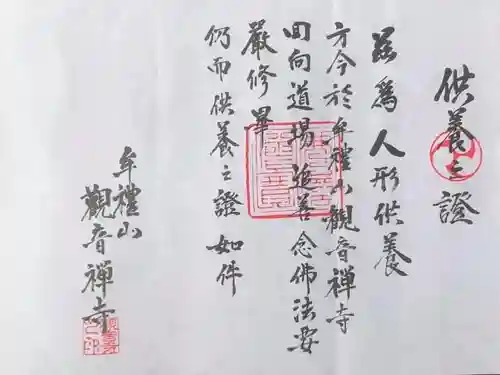 供養之證
茲為人形供養
方今於牟禮山觀音禪寺
回向道場追善念佛法要
嚴修畢
仍而供養之證如件
牟禮山
觀音禪寺